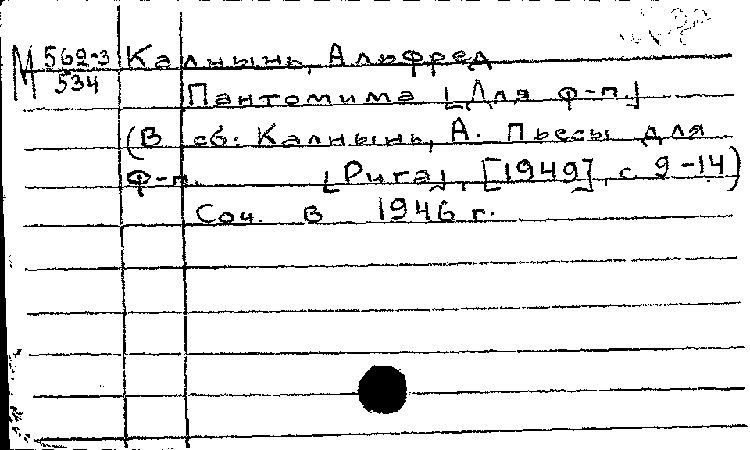 М 562-3/534 Калнынь, Альфред
Пантомима [Для ф-п.]
(В сб. Калнынь, А. Пьесы для
ф-п. [Рига], [1949], с. 9-14)
Соч. в 1946 г.